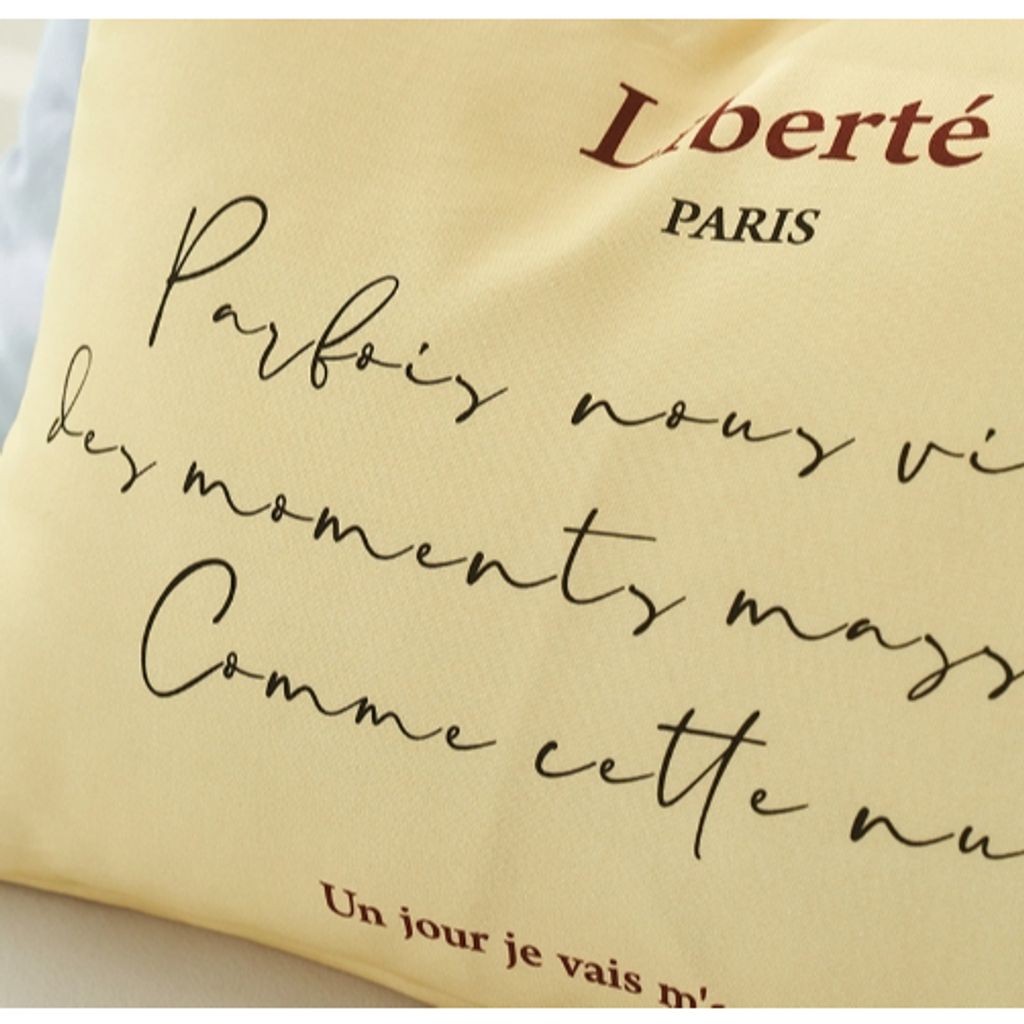 Liberté
PARIS
Parfois nous vi
des moments mass
Comme cette nu
Un jour je vais m'